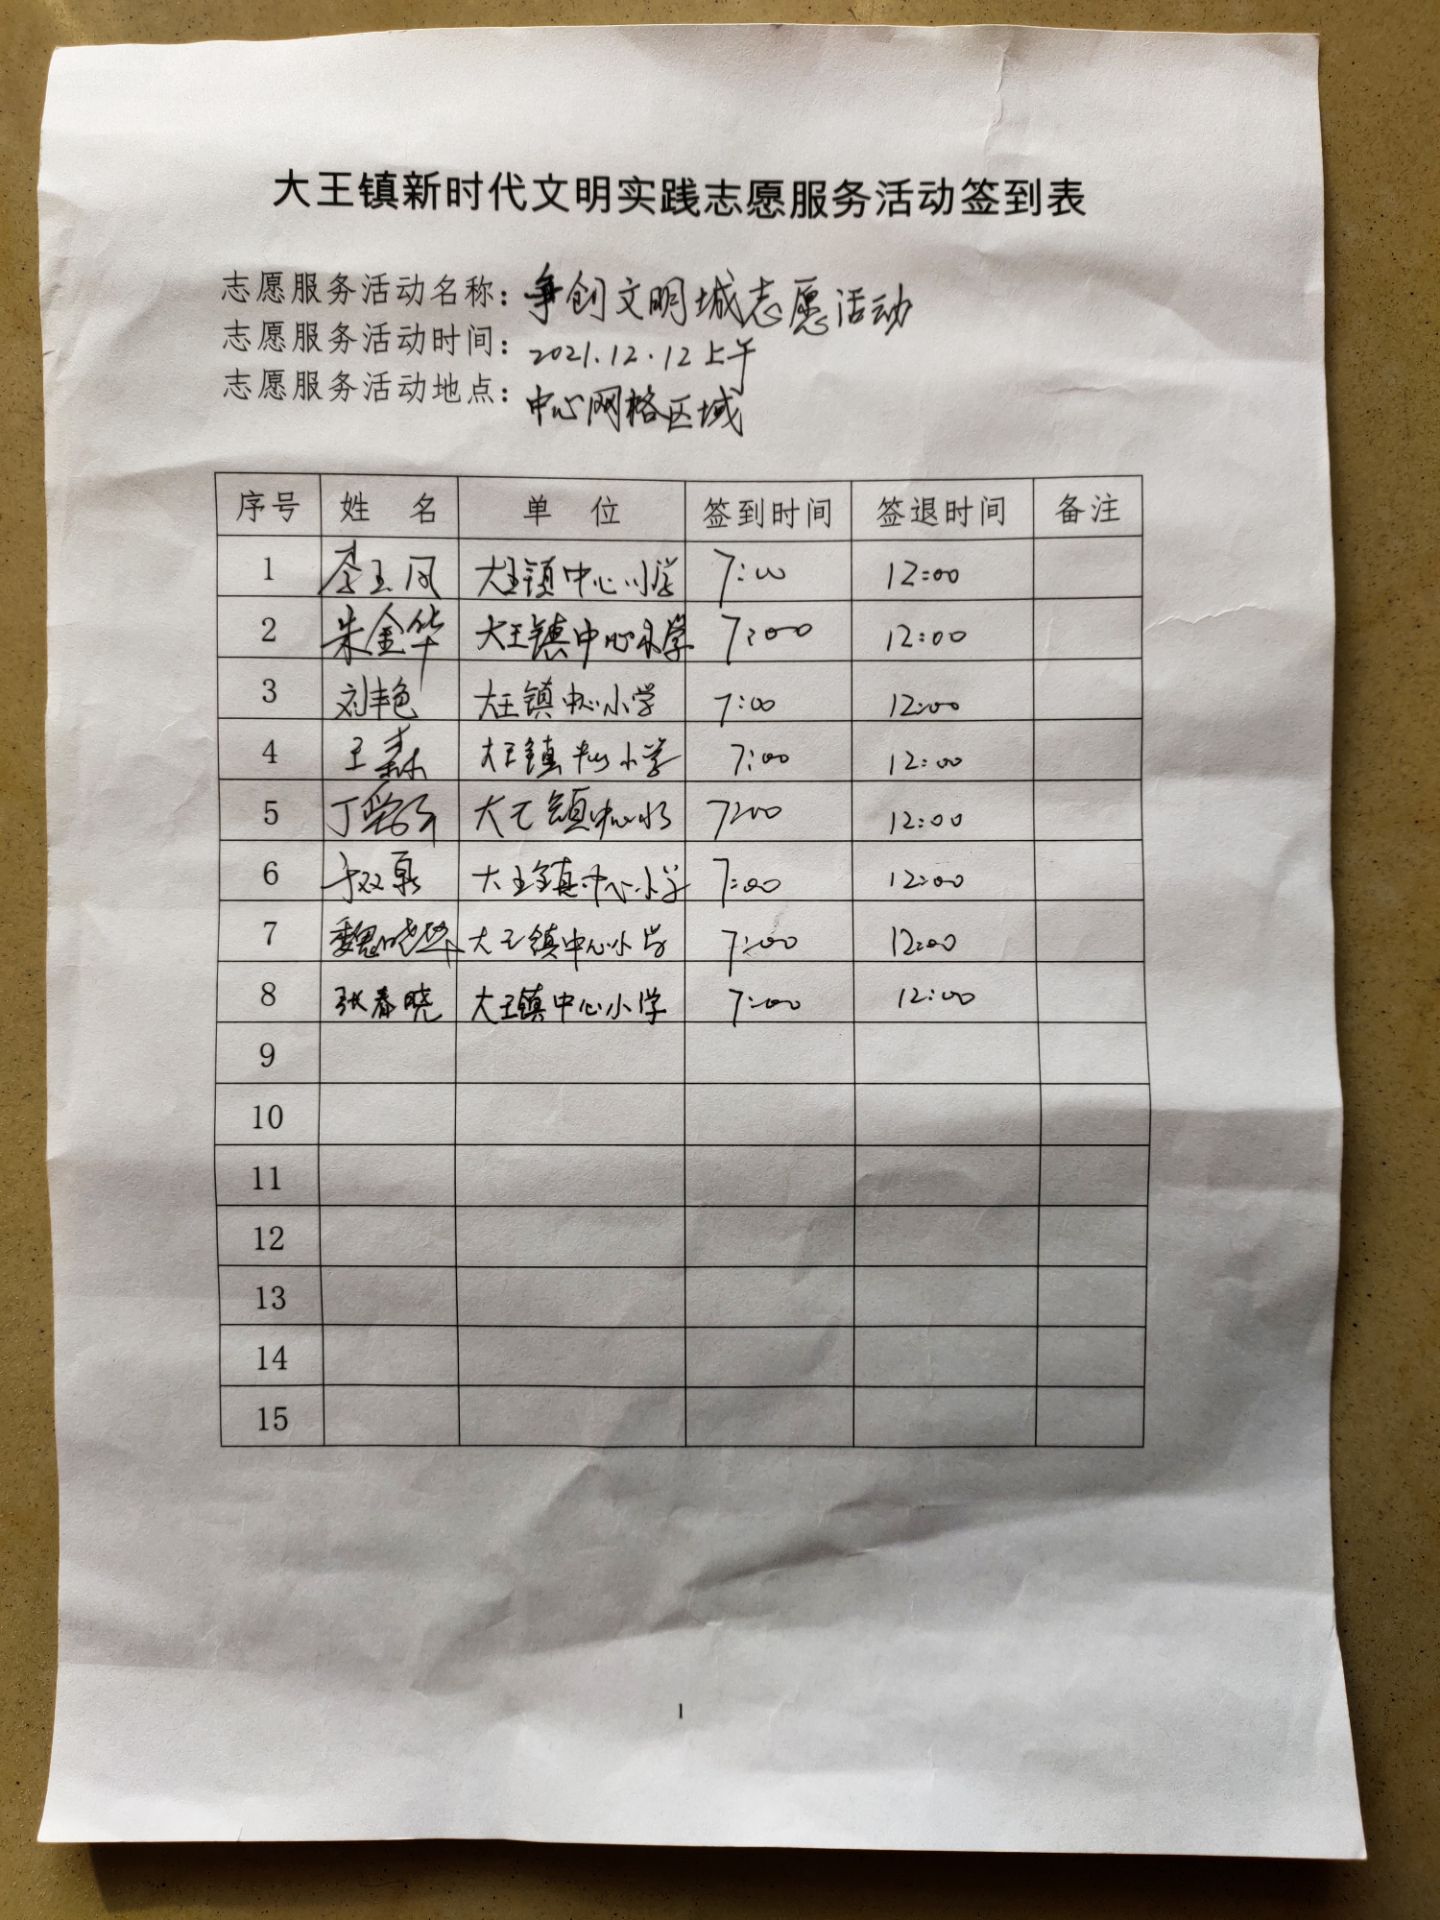 大王镇新时代文明实践志愿服务活动签到表
志愿服务活动名称：争创文明城志愿活动
志愿服务活动时间：2021.12.12上午
志愿服务活动地点：中心网格区域
序号 姓 名 单 位 签到时间 签退时间 备注
1 李玉凤 大王镇中心小学 7:00 12:00
2 朱金华 大王镇中心小学 7:00 12:00
3 刘艳 大王镇中心小学 7:00 12:00
4 王森 大王镇中心小学 7:00 12:00
5 大王镇中心小 7:00 12:00
6 大王镇中心小学 7:00 12:00
7 魏晓 大王镇中心小学 7:00 12:00
8 张春晓 大王镇中心小学 7:00 12:00
9
10
11
12
13
14
15
1